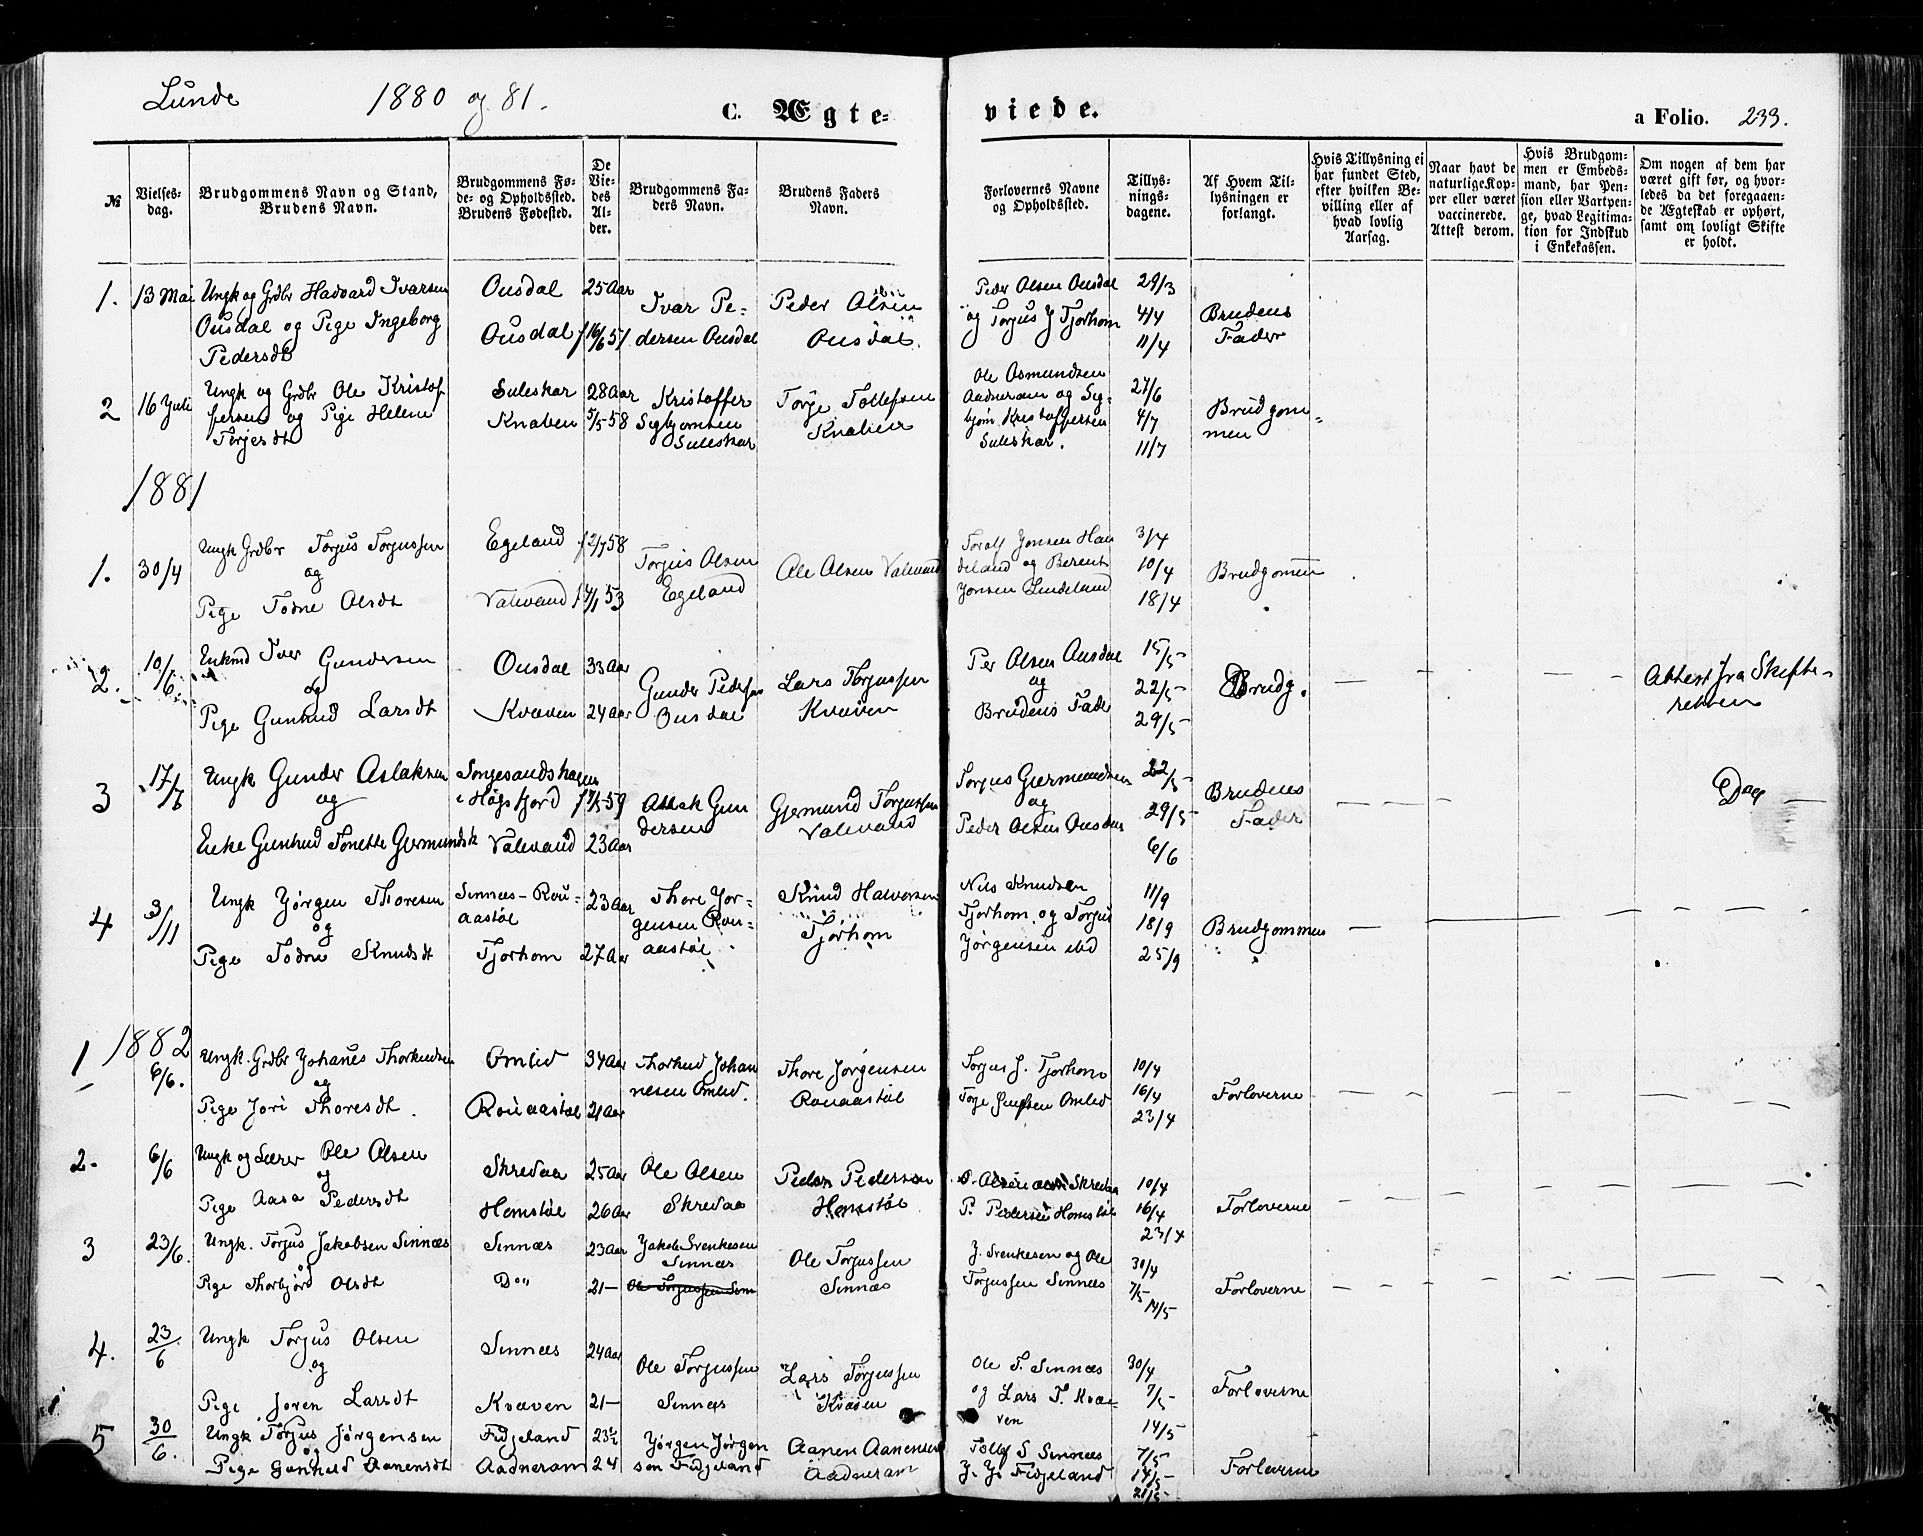 Lunde 1880 og 81.
C. Ægte- viede.
a Folio. 233.
№
Vielses-
dag.
Brudgommens Navn og Stand,
Brudens Navn.
Brudgommens Fø-
de- og Opholdssted.
Brudens Fødested.
De
Vie-
des
Al-
der.
Brudgommens Fa-
ders Navn.
Brudens Faders
Navn.
Forlovernes Navne
og Opholdssted.
Tillys-
nings-
dagene.
Af Hvem Til-
lysningen er
forlangt.
Hvis Tillysning ei
har fundet Sted,
efter hvilken Be-
villing eller af
hvad lovlig
Aarsag.
Naar havt de
naturlige Kop-
per eller været
vaccinerede.
Attest derom.
Hvis Brudgom-
men er Embeds-
mand, har Pen-
sion eller Vartpen-
ge, hvad Legitima-
tion for Indskud
i Enkekassen.
Om nogen af dem har
været gift før, og hvor-
ledes da det foregaaen-
de Ægteskab er ophørt,
samt om lovligt Skifte
er holdt.
1. 13 Mai
Ungk og Grdbr Hadvard Ivarsen
Ousdal og Pige Ingeborg
Pedersdt
Ousdal 25 Aar
Ousdal f 16/6 51
Ivar Pe-
dersen Ousdal
Peder Olsen
Ousdal.
Peder Olsen Ousdal
og Torjus J Tjorhom
29/3
4/4
11/4
Brudens
Fader
2 16 Juli
Ungk og Grdbr Ole Kristof-
fersen og Pige Helene
Torjersdt
Suleskar 28 Aar
Knaben 5/5 58
Kristoffer
Sigbjørnsen
Suleskar
Torje Tollefsen
Knaben
Ole Osmundsen
Aadneram og Sig-
bjørn Kristoffersen
Suleskar.
27/6
4/7
11/7
Brudgom-
men
1881
1. 30/4
Ungk Grdbr Torjus Torjussen
og
Pige Todne Olsdt
Egeland f 2/7 58
Valevand f 4/1 53
Torjus Olsen
Egeland
Ole Olsen Valevand
Toralf Jonsen Hau
deland og Berent
Jonsen Lindeland
3/4
10/4
18/4
Brudgomen
2. 10/6.
Enkmd Iver Gundersen
og
Pige Gunhild Larsdt
Ousdal 33 Aar
Kvæven 24 Aar
Gunder Pedersen
Ousdal
Lars Torjussen
Kvæven
Per Olsen Ousdal
og
Brudens Fader
15/5
22/5
29/5
Brudg.
Attest fra Skifte-
retten
3 17/7
Ungk Gunder Aslaksen
og
Enke Gunhild Tonette Gjermundsdt
Songesandshagen
i Høgsfjord
Valevand 23 Aar
Aslak Gun
dersen
Gjermund Torjussen
Valevand
Torjus Gjermundsen
og
Peder Olsen Ousdal
22/5
29/5
6/6
Brudens
Fader
4 3/11
Ungk Jørgen Thoresen
og
Pige Todne Knudsdt
Sinnæs - Rou-
aastøl 23 Aar
Tjorhom 27 Aar
Thore Jør-
gensen Rou-
aastøl
Knud Halvorsen
Tjorhom
Nils Knudsen
Tjorhom og Torjus
Jørgensen ibd
11/9
18/9
25/9
Brudgommen
1882
1 6/6.
Ungk. Grdbr Johanes Thorkildsen
og
Pige Jori Thoresdt.
Omlid 34 Aar
Rouaastøl 21 Aar
Thorkild Johan
nesen Omlid.
Thore Jørgensen
Rouaastøl
Torjus J. Tjorhom
10/4
16/4
23/4
Forloverne
2. 6/6
Ungk og Lærer Ole Olsen
og
Pige Aasa Pedersdt
Skredaa 25 Aar
Homstøl 26 Aar
Ole Olsen
Skredaa
Peder Pedersen
Homstøl
P. Pedersen Homstøl
10/4
16/4
23/4
Forloverne
3 23/6.
Ungk. Torjus Jakobsen Sinnæs
og
Pige Thorbjørd Olsdt
Sinnæs 23 Aar
Do 21 —
Jakob Svenkesen
Sinnæs
Ole Torjussen
Sinnæs
J. Svenkesen og Ole
Torjussen Sinnæs
30/4
7/5
14/5
Forloverne
4. 23/6
Ungk Torjus Olsen
og
Pige Joren Larsdt
Sinnæs 24 Aar
Kvæven 21 —
Ole Torjussen
Sinnæs
Lars Torjussen
Kvæven
Ole T. Sinnæs
og Lars T. Kvæ-
ven
30/4
7/5
14/5
Forloverne
5 30/6.
Ungk Torjus Jørgensen
og
Pige Gunhild Aanensdt
Fidjeland 23½
Aadneram 24
Jørgen Jørgen
sen Fidjeland
Aanen Aanensen
Aadneram
Tollef S Sinnæs
J. J. Fidjeland
7/5
14/5
21/5
Forloverne